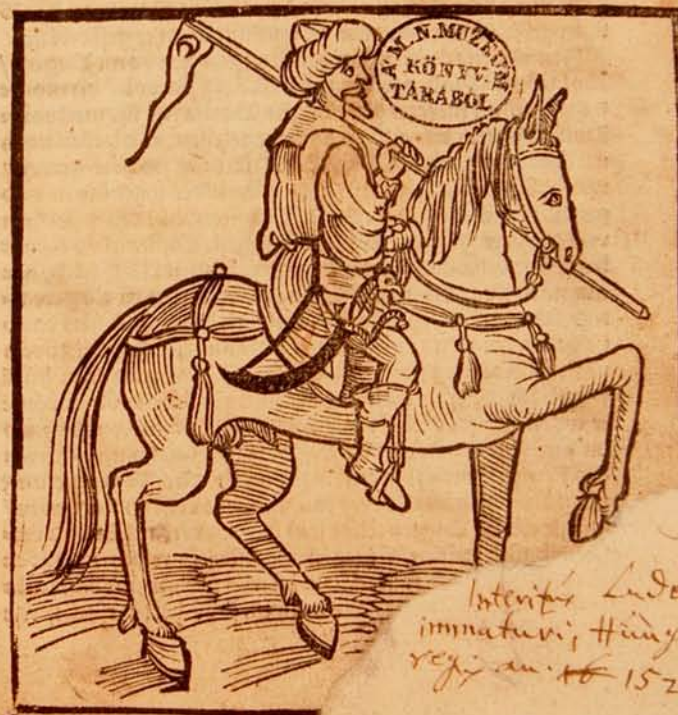 A M. N. MUZEUM
KÖNYV-
TÁRÁBÓL
Interitus Ludo
immaturi, Hung
regis an. 16 152